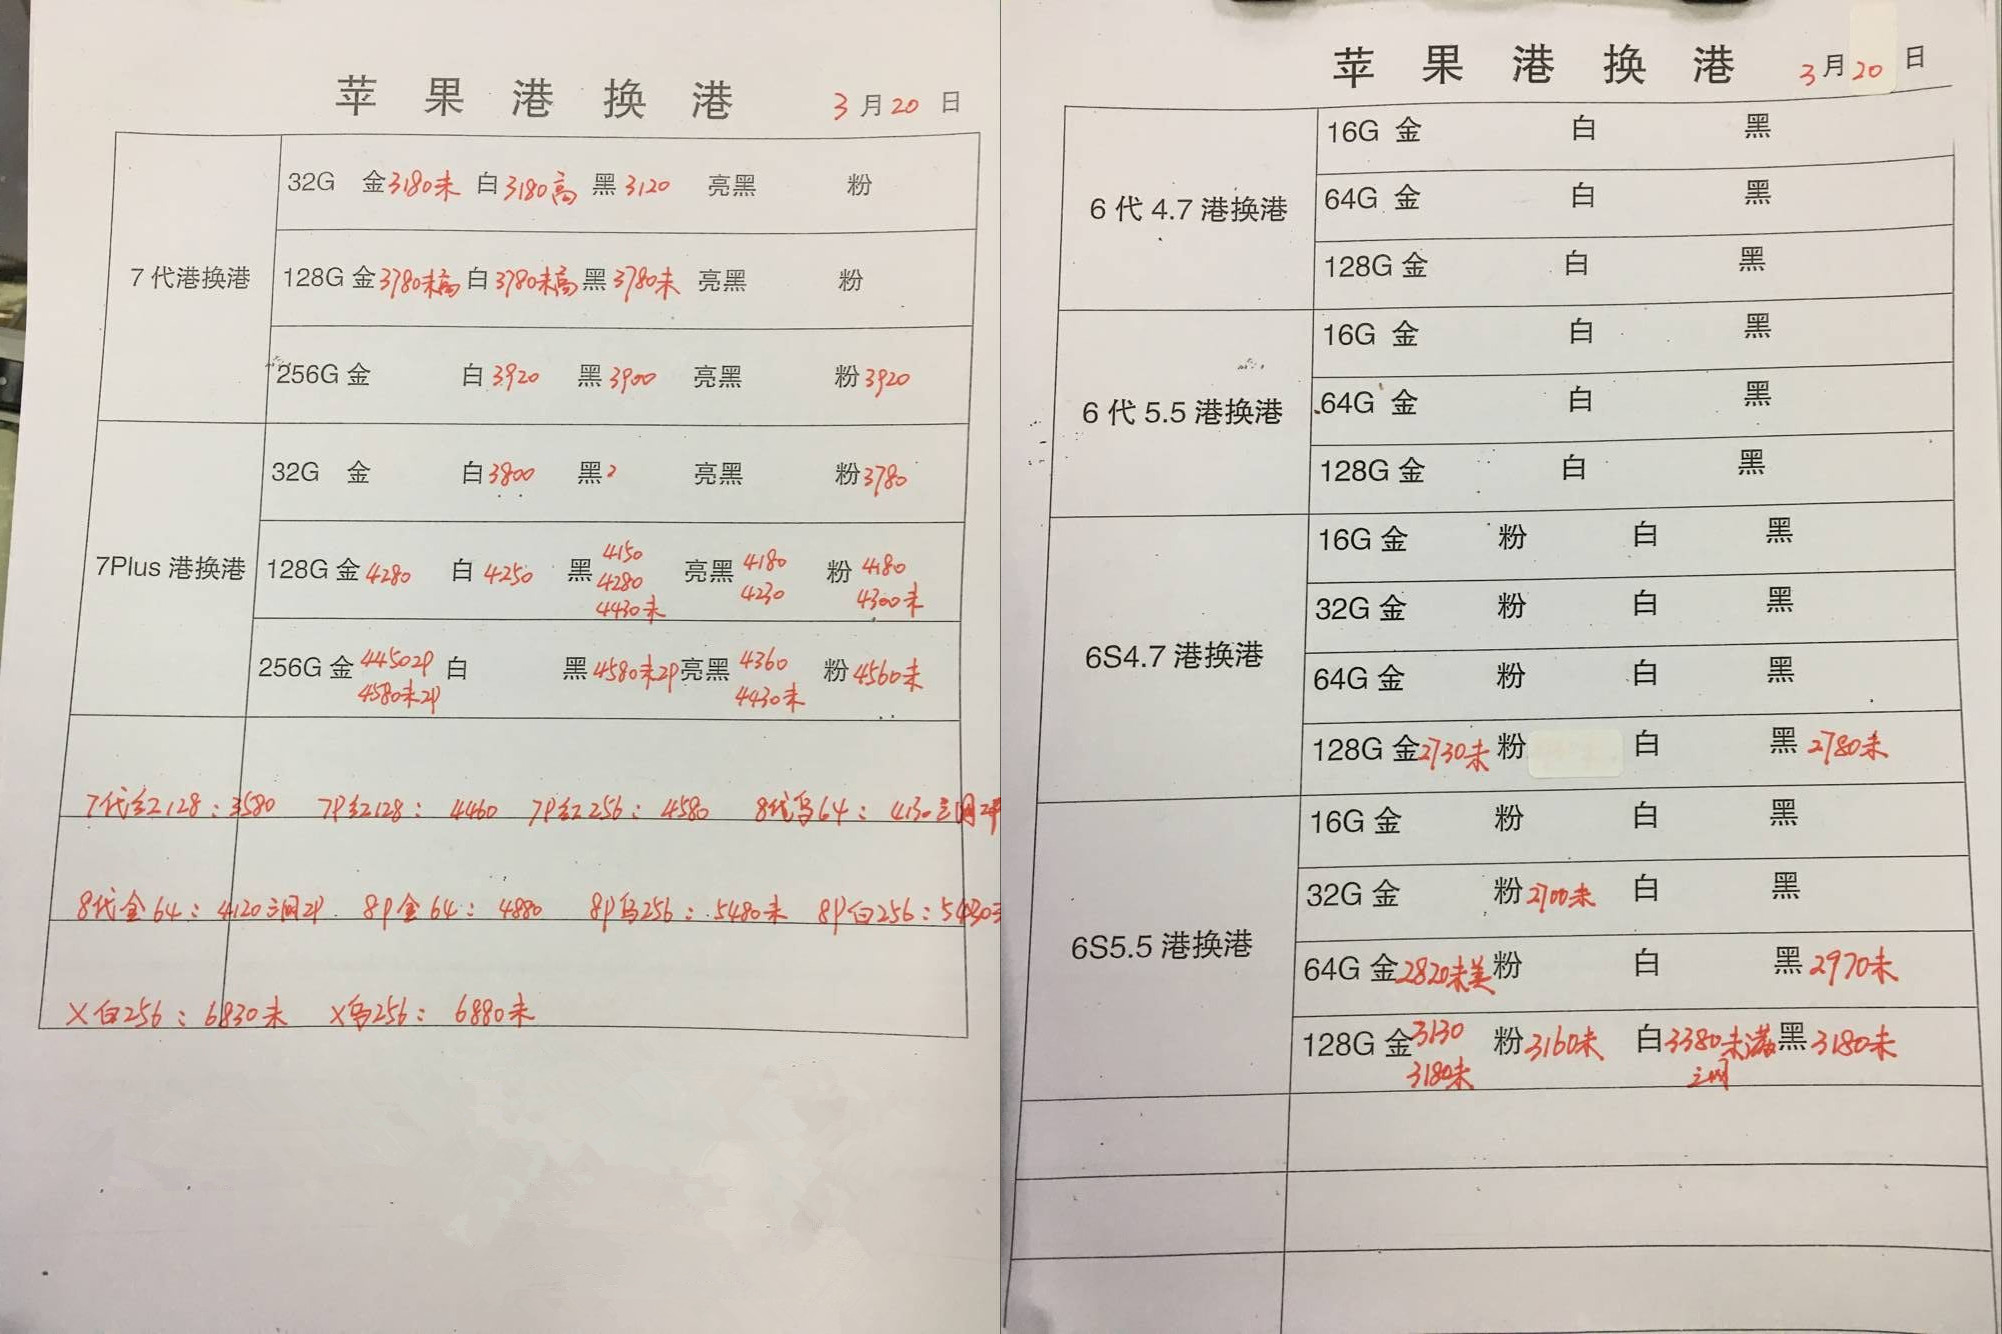 苹果港换港 3月20日
7代港换港
32G 金3180未 白3180高 黑3120 亮黑 粉
128G 金3780未高 白3780未高 黑3780未 亮黑 粉
256G 金 白3920 黑3900 亮黑 粉3920
7Plus港换港
32G 金 白3800 黑 亮黑 粉3780
128G 金4280 白4250 黑4150 亮黑4180 粉4180
4280 4230 4300未
4430未
256G 金44502P 白 黑4580未2P 亮黑4360 粉4560未
4580未2P 4430未
7代红128：3580 7P红128：4460 7P红256：4580 8代乌64：4130三网2P
8代金64：4120三网2P 8P金64：4880 8P乌256：5480未 8P白256：5430
X白256：6830未 X乌256：6880未
苹果港换港 3月20日
6代4.7港换港
16G 金 白 黑
64G 金 白 黑
128G 金 白 黑
6代5.5港换港
16G 金 白 黑
64G 金 白 黑
128G 金 白 黑
6S4.7港换港
16G 金 粉 白 黑
32G 金 粉 白 黑
64G 金 粉 白 黑
128G 金2730未 粉 白 黑2780未
6S5.5港换港
16G 金 粉 白 黑
32G 金 粉2700未 白 黑
64G 金2820未美 粉 白 黑2970未
128G 金3130 粉3160未 白3380未满 黑3180未
3180未 三网